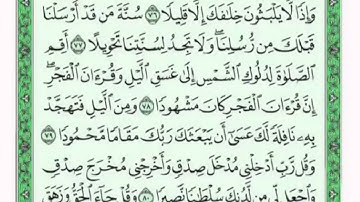 وَإِذًا لَّا يَلْبَثُونَ خِلَٰفَكَ إِلَّا قَلِيلًا ٧٦ سُنَّةَ مَن قَدْ أَرْسَلْنَا
قَبْلَكَ مِن رُّسُلِنَا ۖ وَلَا تَجِدُ لِسُنَّتِنَا تَحْوِيلًا ٧٧ أَقِمِ
ٱلصَّلَوٰةَ لِدُلُوكِ ٱلشَّمْسِ إِلَىٰ غَسَقِ ٱلَّيْلِ وَقُرْءَانَ ٱلْفَجْرِ ۖ
إِنَّ قُرْءَانَ ٱلْفَجْرِ كَانَ مَشْهُودًا ٧٨ وَمِنَ ٱلَّيْلِ فَتَهَجَّدْ
بِهِۦ نَافِلَةً لَّكَ عَسَىٰٓ أَن يَبْعَثَكَ رَبُّكَ مَقَامًا مَّحْمُودًا ٧٩
وَقُل رَّبِّ أَدْخِلْنِى مُدْخَلَ صِدْقٍ وَأَخْرِجْنِى مُخْرَجَ صِدْقٍ
وَٱجْعَل لِّى مِن لَّدُنكَ سُلْطَٰنًا نَّصِيرًا ٨٠ وَقُلْ جَآءَ ٱلْحَقُّ وَزَهَقَ